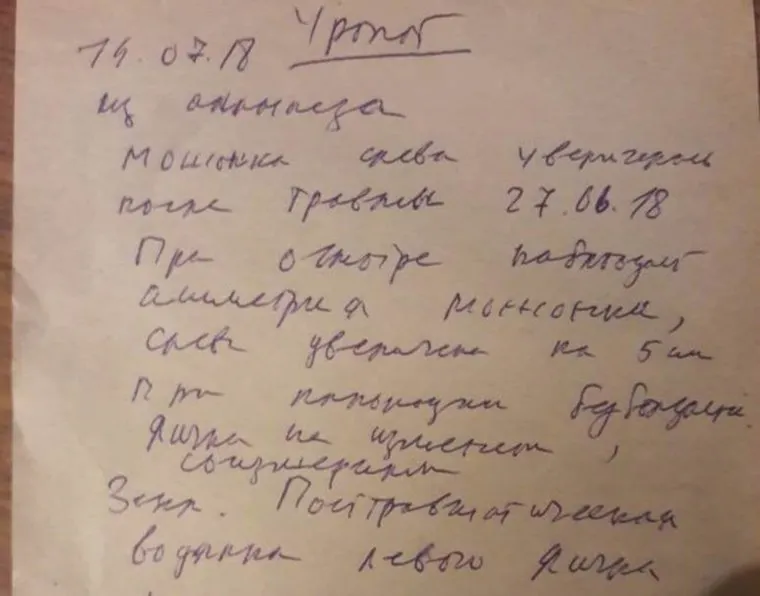 Уролог
19.07.18
из анамнеза
мошонка слева увеличена
после травмы 27.06.18
При осмотре наблюдает
асиметрия мошонки,
слева увеличена на 5 см
При пальпации безболезн.
Яички не изменены,
соизмеримы
Закл. Посттравматическая
водянка левого яичка